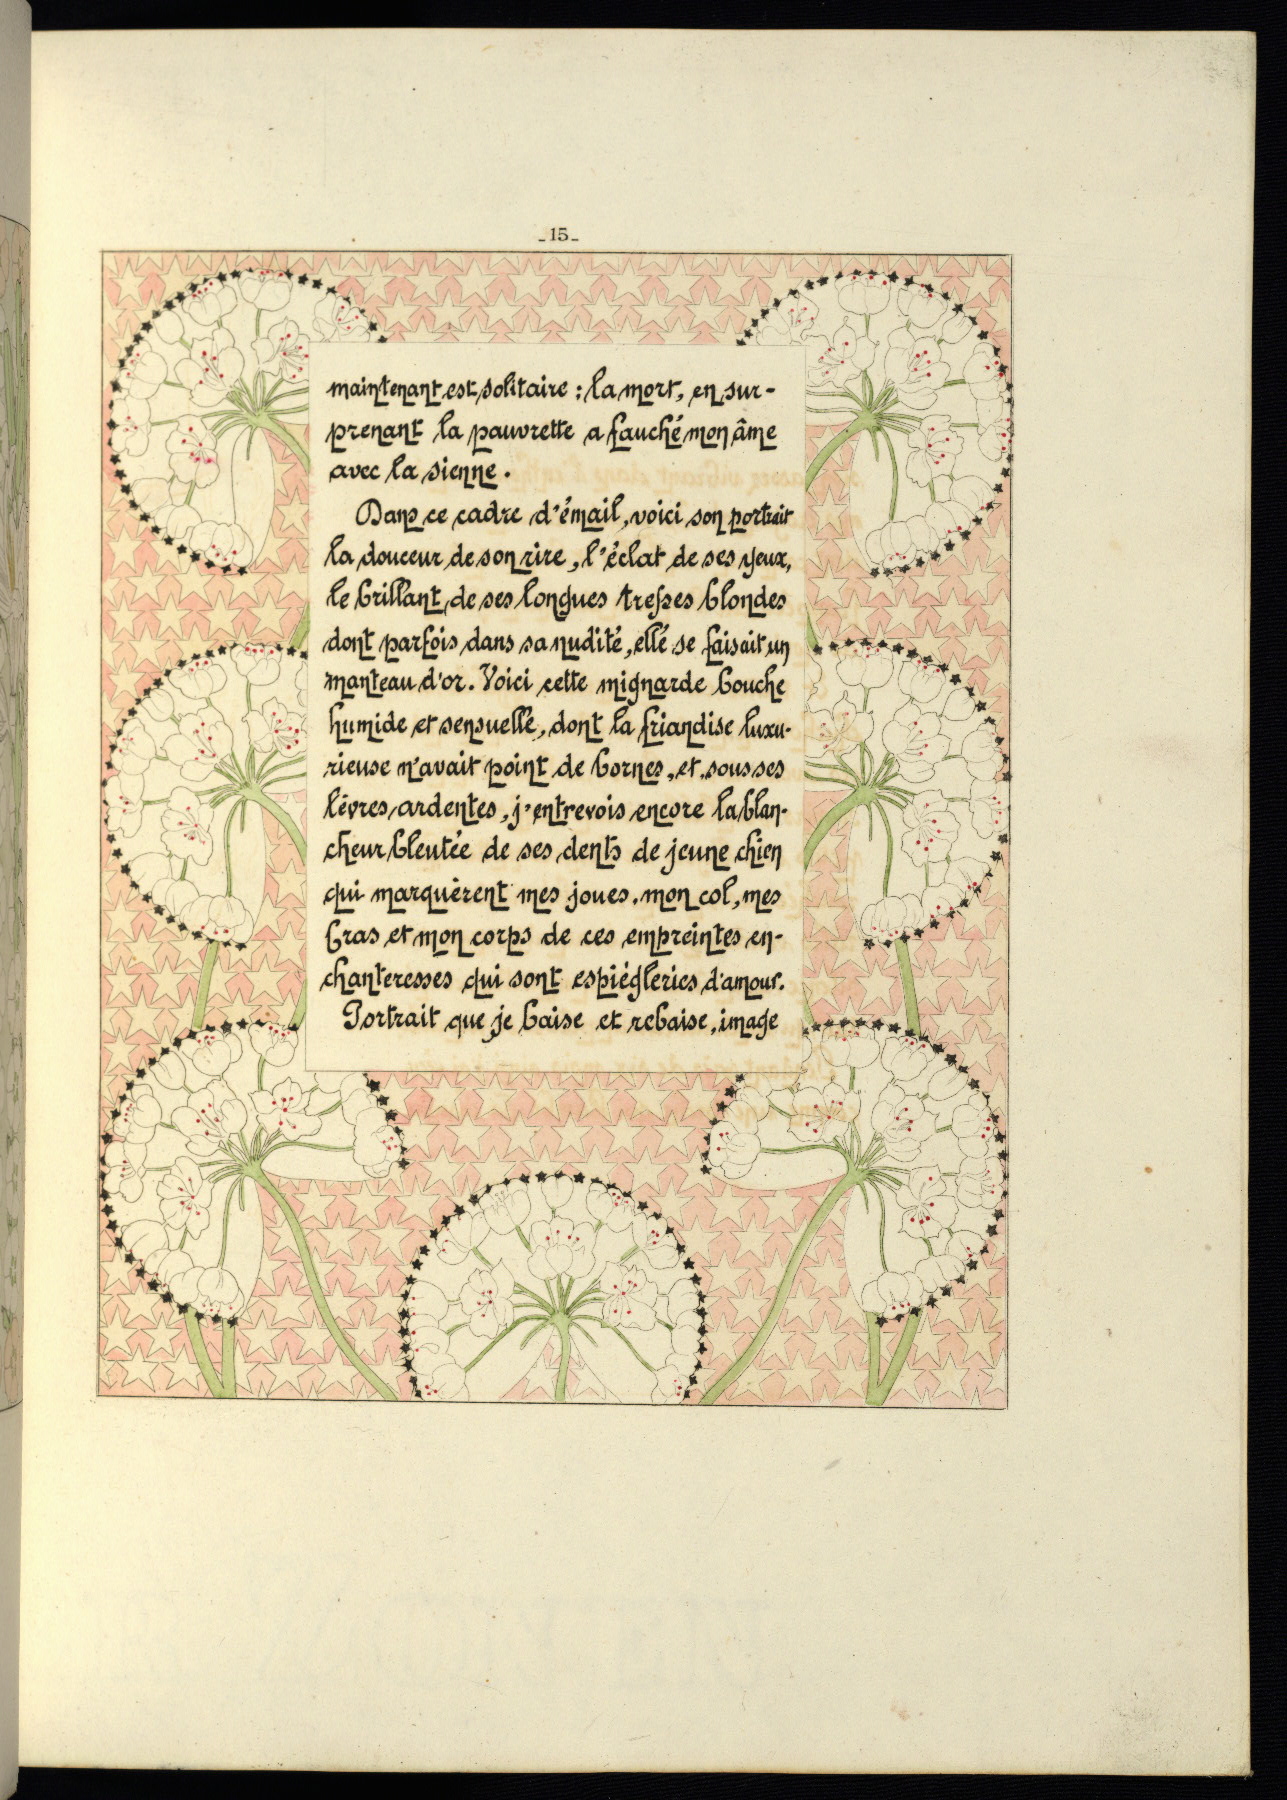 -15-
maintenant est solitaire : la mort, en sur-
prenant la pauvrette a fauché mon âme
avec la sienne.
Dans ce cadre d'émail, voici son portrait
la douceur de son rire, l'éclat de ses yeux,
le brillant de ses longues tresses blondes
dont parfois dans sa nudité, elle se faisait un
manteau d'or. Voici cette mignarde bouche
humide et sensuelle, dont la friandise luxu-
rieuse n'avait point de bornes, et, sous ses
lèvres ardentes, j'entrevois encore la blan-
cheur bleutée de ses dents de jeune chien
qui marquèrent mes joues, mon col, mes
bras et mon corps de ces empreintes en-
chanteresses qui sont espiègleries d'amour.
Portrait que je baise et rebaise, image